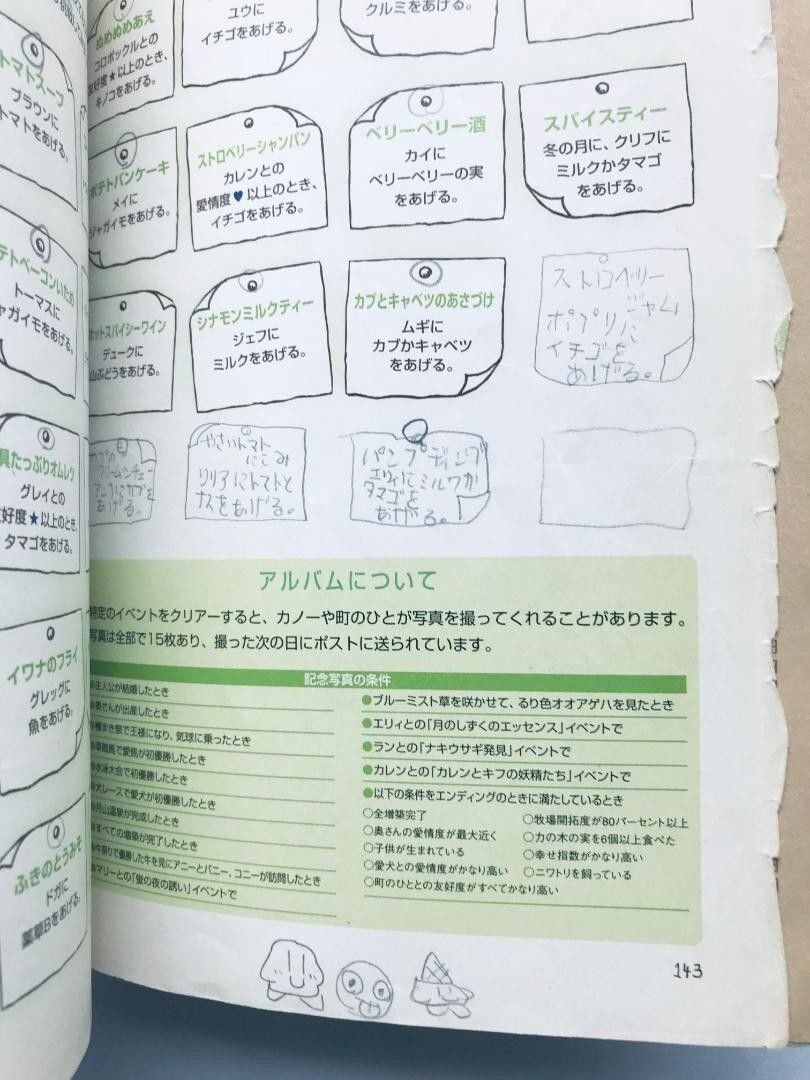 トマトスープ
ブラウンに
トマトをあげる。
テトベーコンいため
トーマスに
ャガイモをあげる。
具たっぷりオムレツ
グレイとの
友好度★以上のとき、
タマゴをあげる。
イワナのフライ
グレッグに
魚をあげる。
ふきのとうみそ
ドガに
薬草Bをあげる。
ぬめぬめあえ
コロボックルとの
友好度★以上のとき、
キノコをあげる。
ユウに
イチゴをあげる。
クルミをあげる。
ポテトパンケーキ
メイに
ジャガイモをあげる。
ストロベリーシャンパン
カレンとの
愛情度♥以上のとき、
イチゴをあげる。
ベリーベリー酒
カイに
ベリーベリーの実
をあげる。
スパイスティー
冬の月に、クリフに
ミルクかタマゴ
をあげる。
ホットスパイシーワイン
デュークに
山ぶどうをあげる。
シナモンミルクティー
ジェフに
ミルクをあげる。
カブとキャベツのあさづけ
ムギに
カブかキャベツ
をあげる。
ストロベリー
ジャム
ポプリに
イチゴを
あげる。
クリームシチュー
カブを
あげる。
やさいトマト
にこみ
リリアにトマトと
ナスをあげる。
パンプディング
エリィにミルクか
タマゴを
あげる。
アルバムについて
特定のイベントをクリアーすると、カノーや町のひとが写真を撮ってくれることがあります。
写真は全部で15枚あり、撮った次の日にポストに送られています。
記念写真の条件
●主人公が結婚したとき
●奥さんが出産したとき
●種まき祭で王様になり、気球に乗ったとき
●草競馬で愛馬が初優勝したとき
●水泳大会で初優勝したとき
●犬レースで愛犬が初優勝したとき
●月山温泉が完成したとき
●すべての増築が完了したとき
●牛祭りで優勝した牛を見にアニーとバニー、コニーが訪問したとき
●マリーとの「蛍の夜の誘い」イベントで
●ブルーミスト草を咲かせて、るり色オオアゲハを見たとき
●エリィとの「月のしずくのエッセンス」イベントで
●ランとの「ナキウサギ発見」イベントで
●カレンとの「カレンとキフの妖精たち」イベントで
●以下の条件をエンディングのときに満たしているとき
○全増築完了
○奥さんの愛情度が最大近く
○子供が生まれている
○愛犬との愛情度がかなり高い
○町のひととの友好度がすべてかなり高い
○牧場開拓度が80パーセント以上
○力の木の実を6個以上食べた
○幸せ指数がかなり高い
○ニワトリを飼っている
143